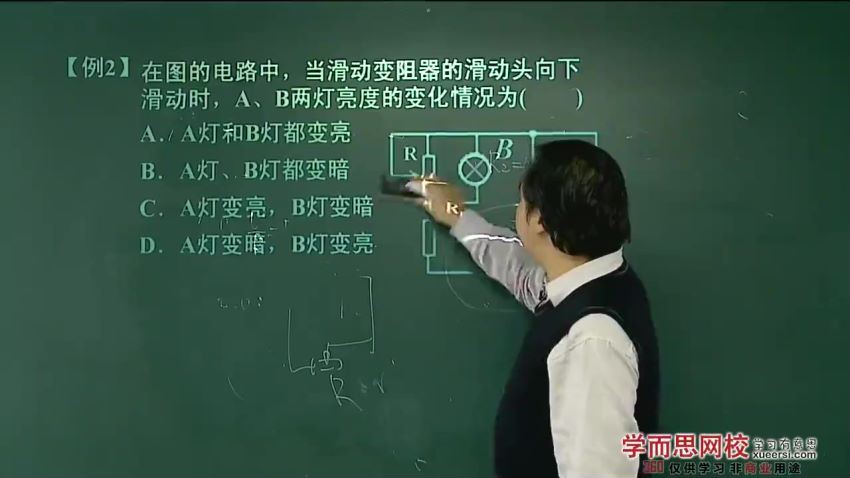 【例2】在图的电路中，当滑动变阻器的滑动头向下
滑动时，A、B两灯亮度的变化情况为(　　)
A．A灯和B灯都变亮
B．A灯、B灯都变暗
C．A灯变亮，B灯变暗
D．A灯变暗，B灯变亮
R
B
R
R
学而思网校
学习有意思
xueersi.com
360 仅供学习 非商业用途